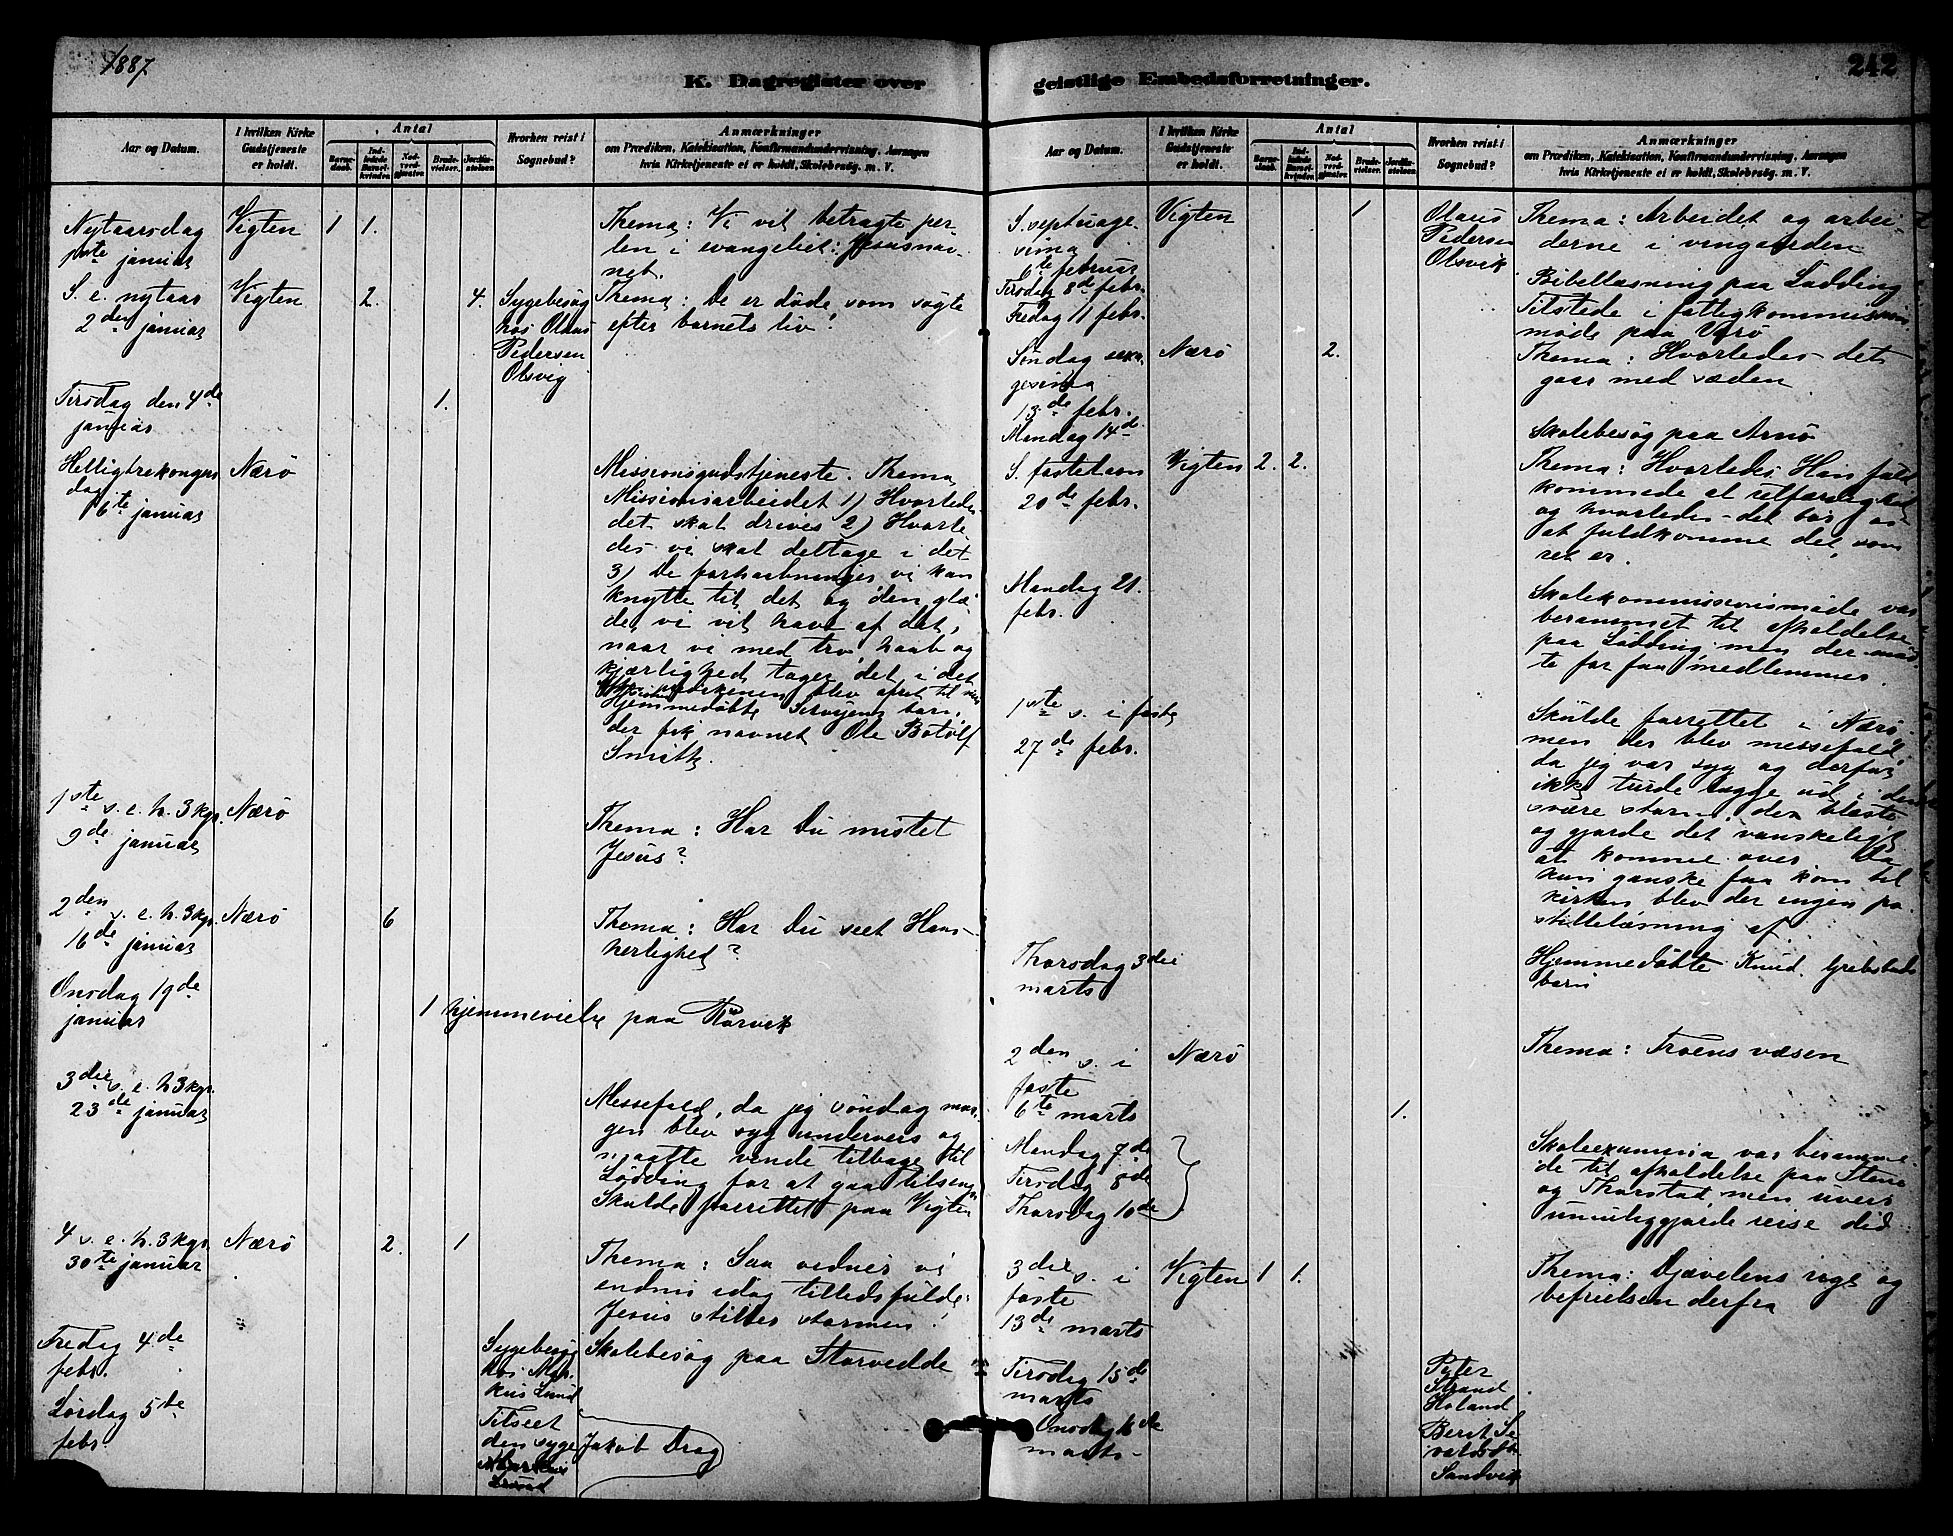 1887
K. Dagregister over
Aar og Datum.
I hvilken Kirke Gudstjeneste er holdt.
Antal
Barnedaab.
Indledede Barselkvinder.
Nadverdgjæster.
Brudevielser.
Jordfæstelser.
Hvorhen reist i Sognebud?
Anmærkninger
om Prædiken, Katekisation, Konfirmandundervisning, Aarsagen
hvis Kirketjeneste ei er holdt, Skolebesög. m. V.
Nytaarsdag
1ste januar
Vigten
1
1.
Thema: Vi vil betragte per-
len i evangeliet: Jesusnav-
net.
S. e. nytaar
2den januar
Vigten
2.
4.
Sygebesøg
hos Olaus
Pedersen
Olsvig
Thema: De er døde, som søgte
efter barnets liv!
Tirsdag den 4de
januar
1.
Helligtrekongers
dag
6te januar
Nærö
Missionsgudstjeneste. Thema
Missionsarbeidet 1) Hvorledes
det skal drives 2) Hvorle
des vi skal deltage i det
3) De forhaabninger, vi kan
knytte til det og den glæ
de, vi vil have af det,
naar vi med tro, haab og
kjærlighed tager del i det
blev ofret til
Hjemmedøbte barn,
der fik navnet Ole Botolf
Smith.
1ste s. e. h. 3 kgr.
9de januar
Nærö
Thema: Har Du mistet
Jesus?
2den s. e. h. 3 kgr.
16de januar
Nærö
6
Thema: Har Du seet Hans
herlighed?
Onsdag 19de
januar
1 hjemmevielse paa Rørvik
3die s. e. h 3 kgr.
23de januar
Messefald, da jeg søndag mor-
gen blev syg underveis og
maatte vende tilbage til
Lødding for at gaa tilsengs
Skulde forrettet paa Vigten
4 s. e. h. 3 kgr.
30te januar
Nærö
2.
1
Thema: Saa vidner vi
endnu idag tillidsfulde:
Jesus stiller stormen!
Fredag 4de
febr.
Sygebesøg
hos Mar-
kus Lund
Skolebesøg paa Storvedde
Lørdag 5te
febr.
Tilseet
den syge
Markus
Lund
Jakob Drag
geistlige Embedsforretninger.
242
Aar og Datum.
I hvilken Kirke Gudstjeneste er holdt.
Antal
Barnedaab.
Indledede Barselkvinder.
Nadverdgjæster.
Brudevielser.
Jordfæstelser.
Hvorhen reist i Sognebud?
Anmærkninger
om Prædiken, Katekisation, Konfirmandundervisning, Aarsagen
hvis Kirketjeneste ei er holdt, Skolebesög. m. V.
S. septuage-
sima
6te februar
Vigten
1
Olaus
Pedersen
Olsvik
Thema: Arbeidet og arbei-
derne i vingaarden
Tirsdag 8de febr.
Bibellæsning paa Lødding
Fredag 11 febr.
Tilstede i fattigkommissions
møde paa Værø
Søndag sexa-
gesima
13de febr.
Nærö
2.
Thema: Hvorledes det
gaar med sæden
Mandag 14de
Skolebesøg paa Arnø
S. fastelavn
20de febr.
Vigten
2.
2.
Thema: Hvorledes Han fuld
kommede al retfærdighed
og hvorledes det bør os
at fuldkomme det, som
ret er.
Mandag 21.
febr.
Skolekommissionsmøde var
berammet til afholdelse
paa Lødding, men der mød
te for faa medlemmer.
1ste s. i faste
27de febr.
Skulde forrettet i Nærö,
men der blev messefald,
da jeg var syg og derfor
ikke turde lægge ud i den
svære storm, der blæste
og gjorde det vanskeligt
at komme over. Da
kun ganske faa kom til
kirken blev der ingen po
stillelæsning af.
Thorsdag 3die
marts
Hjemmedøbte Knud
barn
2den s. i
faste
6te marts
Nærö
1.
Thema: Troens væsen
Mandag 7de
Tirsdag 8de
Thorsdag 10de
Skoleexamina var beramme-
de til afholdelse paa Stene
og Thorstad, men uveir
umuliggjorde reise did
3die s. i
faste
13de marts
Vigten
1
1.
Thema: Djævelens rige og
befrielsen derfra
Tirsdag 15de
marts
Peter
Strand
Holand
Onsdag 16de
marts
Berit Si-
valdsdtr.
Sandvik